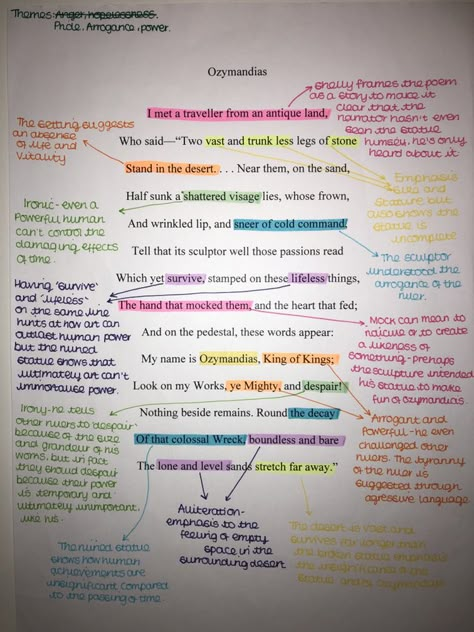 Themes: Anger, hopelessness.
Pride, Arrogance, power.
Ozymandias
Shelly frames the poem
as a story to make it
clear that the
narrator hasn't even
seen the statue
himself, he's only
heard about it
I met a traveller from an antique land,
The setting suggests
an absence
of life and
vitality
Who said—“Two vast and trunk less legs of stone
Stand in the desert. . . . Near them, on the sand,
Emphasis
size and
stature but
also shows the
statue is
incomplete
Half sunk a shattered visage lies, whose frown,
Ironic - even a
Powerful human
can't control the
damaging effects
of time.
And wrinkled lip, and sneer of cold command,
Tell that its sculptor well those passions read
The sculptor
understood the
arrogance of the
ruler.
Which yet survive, stamped on these lifeless things,
Having 'survive'
and 'lifeless'
on the same line
hints at how art can
outlast human power
but the ruined
statue shows that
ultimately art can't
immortalise power.
The hand that mocked them, and the heart that fed;
Mock can mean to
ridicule or to create
a likeness of
something - prehaps
the sculpture intended
his statue to make
fun of ozymandias.
And on the pedestal, these words appear:
My name is Ozymandias, King of Kings;
Look on my Works, ye Mighty, and despair!
Irony - he tells
other rulers to 'despair'
because of the size
and grandeur of his
works, but in fact
they should despair
because their power
is temporary and
ultimately unimportant
like his.
Arrogant and
Powerful - he even
challenged other
rulers. The tyranny
of the ruler is
suggested through
agressive language.
Nothing beside remains. Round the decay
Of that colossal Wreck, boundless and bare
The lone and level sands stretch far away.”
Alliteration -
emphasis to the
feeling of empty
space in the
surrounding desert
The desert is vast and
survives far longer than
the broken statue emphasis
the insignificance of the
statue and of Ozymandias
The ruined statue
shows how human
achievements are
insignificant compared
to the passing of time.